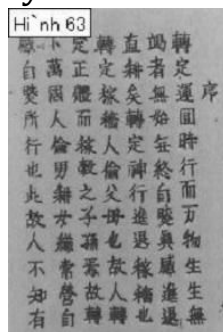 Hi`nh 63
序
轉定運回時行而万物生生無
竭者無始無終自發與感進退
直耕矣轉定神行進退稼穡也
轉定稼穡人倫父母也故人轉
定正體而稼穀之子孫焉故轉
下萬國人倫男耕女織常營自
自發所行也此故人不知有